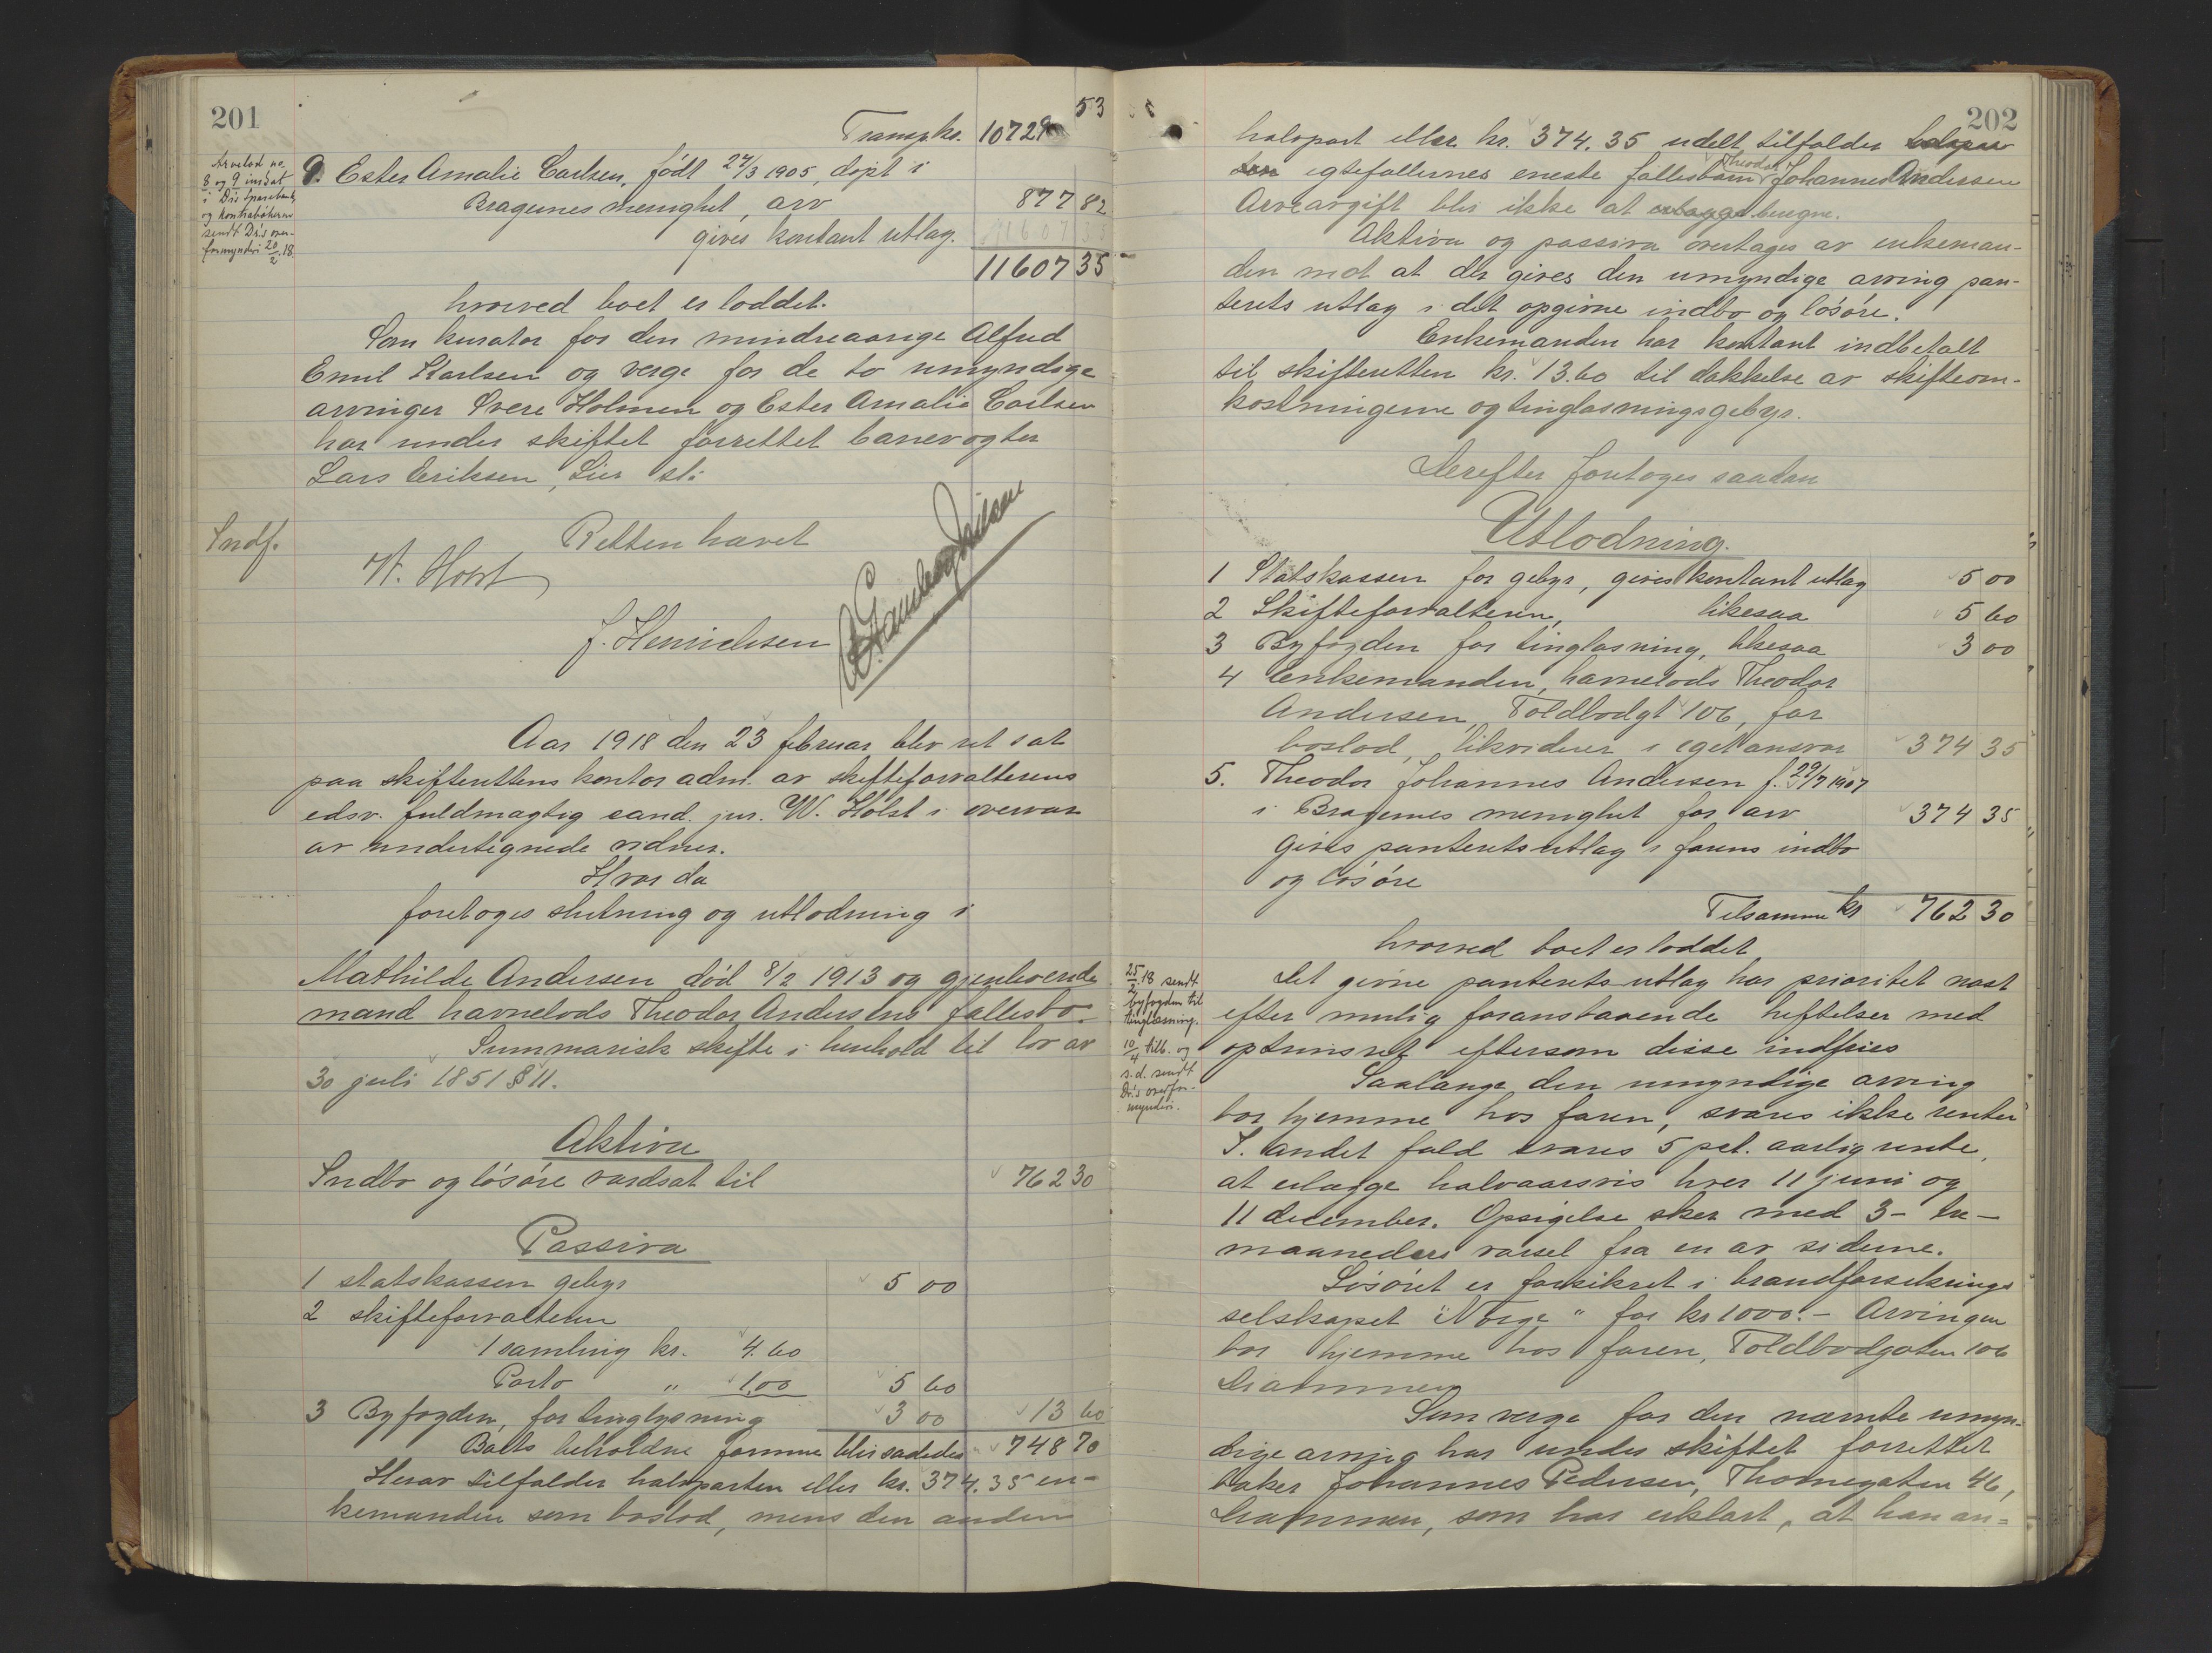 201
Transp. kr. 10729 53
Arvelod no.
8 og 9 indsat
i Dr's Sparebank,
og kontrabøkerne
sendt Dr's over-
formynderi 20/2.18.
9. Ester Amalie Carlsen, født 24/3 1905, døpt i
Bragernes menighet, arv 877 82
gives kontant utlæg. 11607 35
11607 35
hvorved boet er loddet.
Som kurator for den mindreaarige Alfred
Emil Karlsen og verge for de to umyndige
arvinger Svere Holmen og Ester Amalie Carlsen
har under skiftet forrettet banevogter
Lars Eriksen, Lier st:
Indf.
Retten hævet
W. Holst
J. Henrichsen
Aar 1918 den 23 februar blev ret sat
paa skifterettens kontor adm. av skifteforvalterens
edsv. fuldmægtig cand. jur. W. Holst i overvær
av undertegnede vidner.
Hvor da
foretoges slutning og utlodning i
Mathilde Andersen død 8/2 1913 og gjenlevende
mand havnelods Theodor Andersens fællesbo.
Summarisk skifte i henhold til lov av
30 juli 1851 § 11.
Aktiva
Indbo og løsøre værdsat til 762 30
Passiva
1 statskassen gebyr 5 00
2 skifteforvalteren
1 samling kr. 4.60
Porto " 1.00 5 60
3 Byfogden, for tinglysning 3 00 13 60
Boets beholdne formue blir saaledes 748 70
Herav tilfalder halvparten eller kr. 374.35 en-
kemanden som boslod, mens den anden
202
halvpart eller kr. 374.35 udelt tilfalder
egtefællernes eneste fællesbarn Theodor Johannes Andersen
Arveavgift blir ikke at beregne.
Aktiva og passiva overtages av enkeman-
den mot at der gives den umyndige arving pan-
terets utlæg i det opgivne indbo og løsøre.
Enkemanden har kontant indbetalt
til skifteretten kr. 13.60 til dækkelse av skifteom-
kostningerne og tinglæsningsgebyr.
Derefter foretoges saadan
Utlodning.
1 Statskassen for gebyr, gives kontant utlæg 5 00
2 Skifteforvalteren, likesaa 5 60
3 Byfogden for tinglæsning, likesaa 3 00
4 Enkemanden, havnelods Theodor
Andersen, Toldbodgt 106, for
boslod, likviderer i eget ansvar 374 35
5. Theodor Johannes Andersen f. 29/7 1907
i Bragernes menighet for arv 374 35
gives panteretsutlæg i farens indbo
og løsøre
Tilsammen kr 762 30
hvorved boet er loddet
25/2 18 sendt
byfogden til
tinglæsning.
10/4 tilb. og
s.d. sendt
Dr.'s overfor-
mynderi.
Det givne panterets utlæg har prioritet næst
efter mulig foranstaaende heftelser med
optrinsret eftersom disse indfries
Saalænge den umyndige arving
bor hjemme hos faren, svares ikke renter
I. andet fald svares 5 pct. aarlig rente,
at erlægge halvaarsvis hver 11 juni og
11 december. Opsigelse sker med 3 - tre -
maaneders varsel fra en av siderne.
Løsøret er forsikret i brandforsikrings
selskapet "Norge" for kr 1000.- Arvingen
bor hjemme hos faren, Toldbodgaten 106
Drammen
Som verge for den nævnte umyn-
dige arving har under skiftet forrettet
baker Johannes Pedersen, Thornegaten 46,
Drammen, som har erklært, at han an=